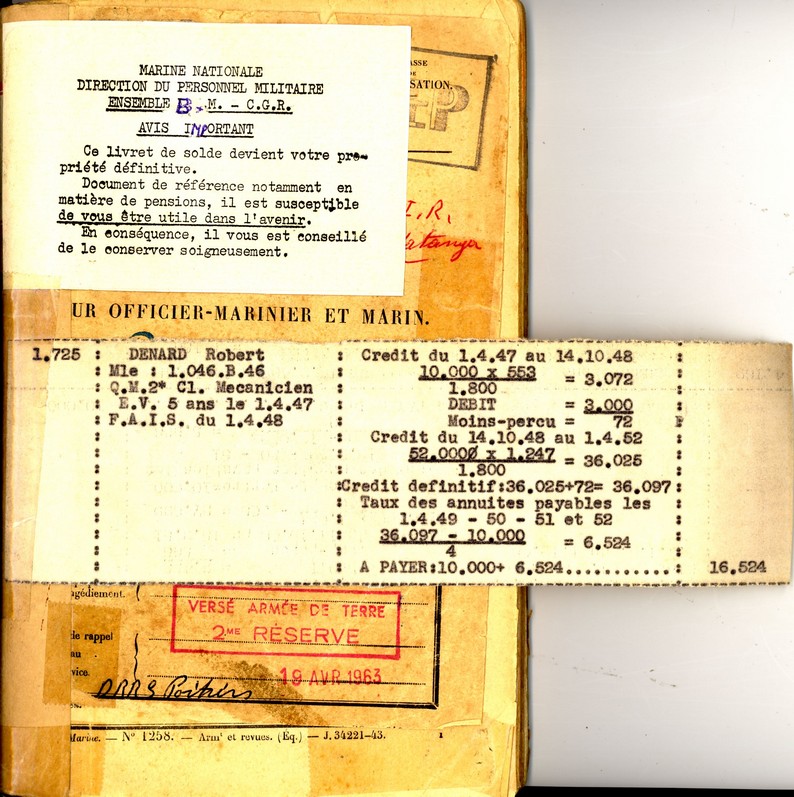 MARINE NATIONALE
DIRECTION DU PERSONNEL MILITAIRE
ENSEMBLE B.M. - C.G.R.
AVIS IMPORTANT
Ce livret de solde devient votre pro-
priété définitive.
Document de référence notamment en
matière de pensions, il est susceptible
de vous être utile dans l'avenir.
En conséquence, il vous est conseillé
de le conserver soigneusement.
ASSE
DE
SATION.
I.R.
UR OFFICIER-MARINIER ET MARIN.
1.725 : DENARD Robert
: Mle : 1.046.B.46
: Q.M.2* Cl. Mecanicien
: E.V. 5 ans le 1.4.47
: F.A.I.S. du 1.4.48
: Credit du 1.4.47 au 14.10.48 :
10.000 x 553
1.800
= 3.072
DEBIT = 3.000
Moins-percu = 72
Credit du 14.10.48 au 1.4.52
52.0000 x 1.247
1.800
= 36.025
:Credit definitif:36.025+72= 36.097:
Taux des annuites payables les
1.4.49 - 50 - 51 et 52
36.097 - 10.000
4
= 6.524
A PAYER:10.000+ 6.524...........: 16.524
ngédiement.
VERSÉ ARMÉE DE TERRE
2ME RÉSERVE
de rappel
au
vice.
19 AVR 1963
DRRS Poitiers
Marine. — N° 1258. — Armt et revues. (Éq.) — J. 34221-43. 1